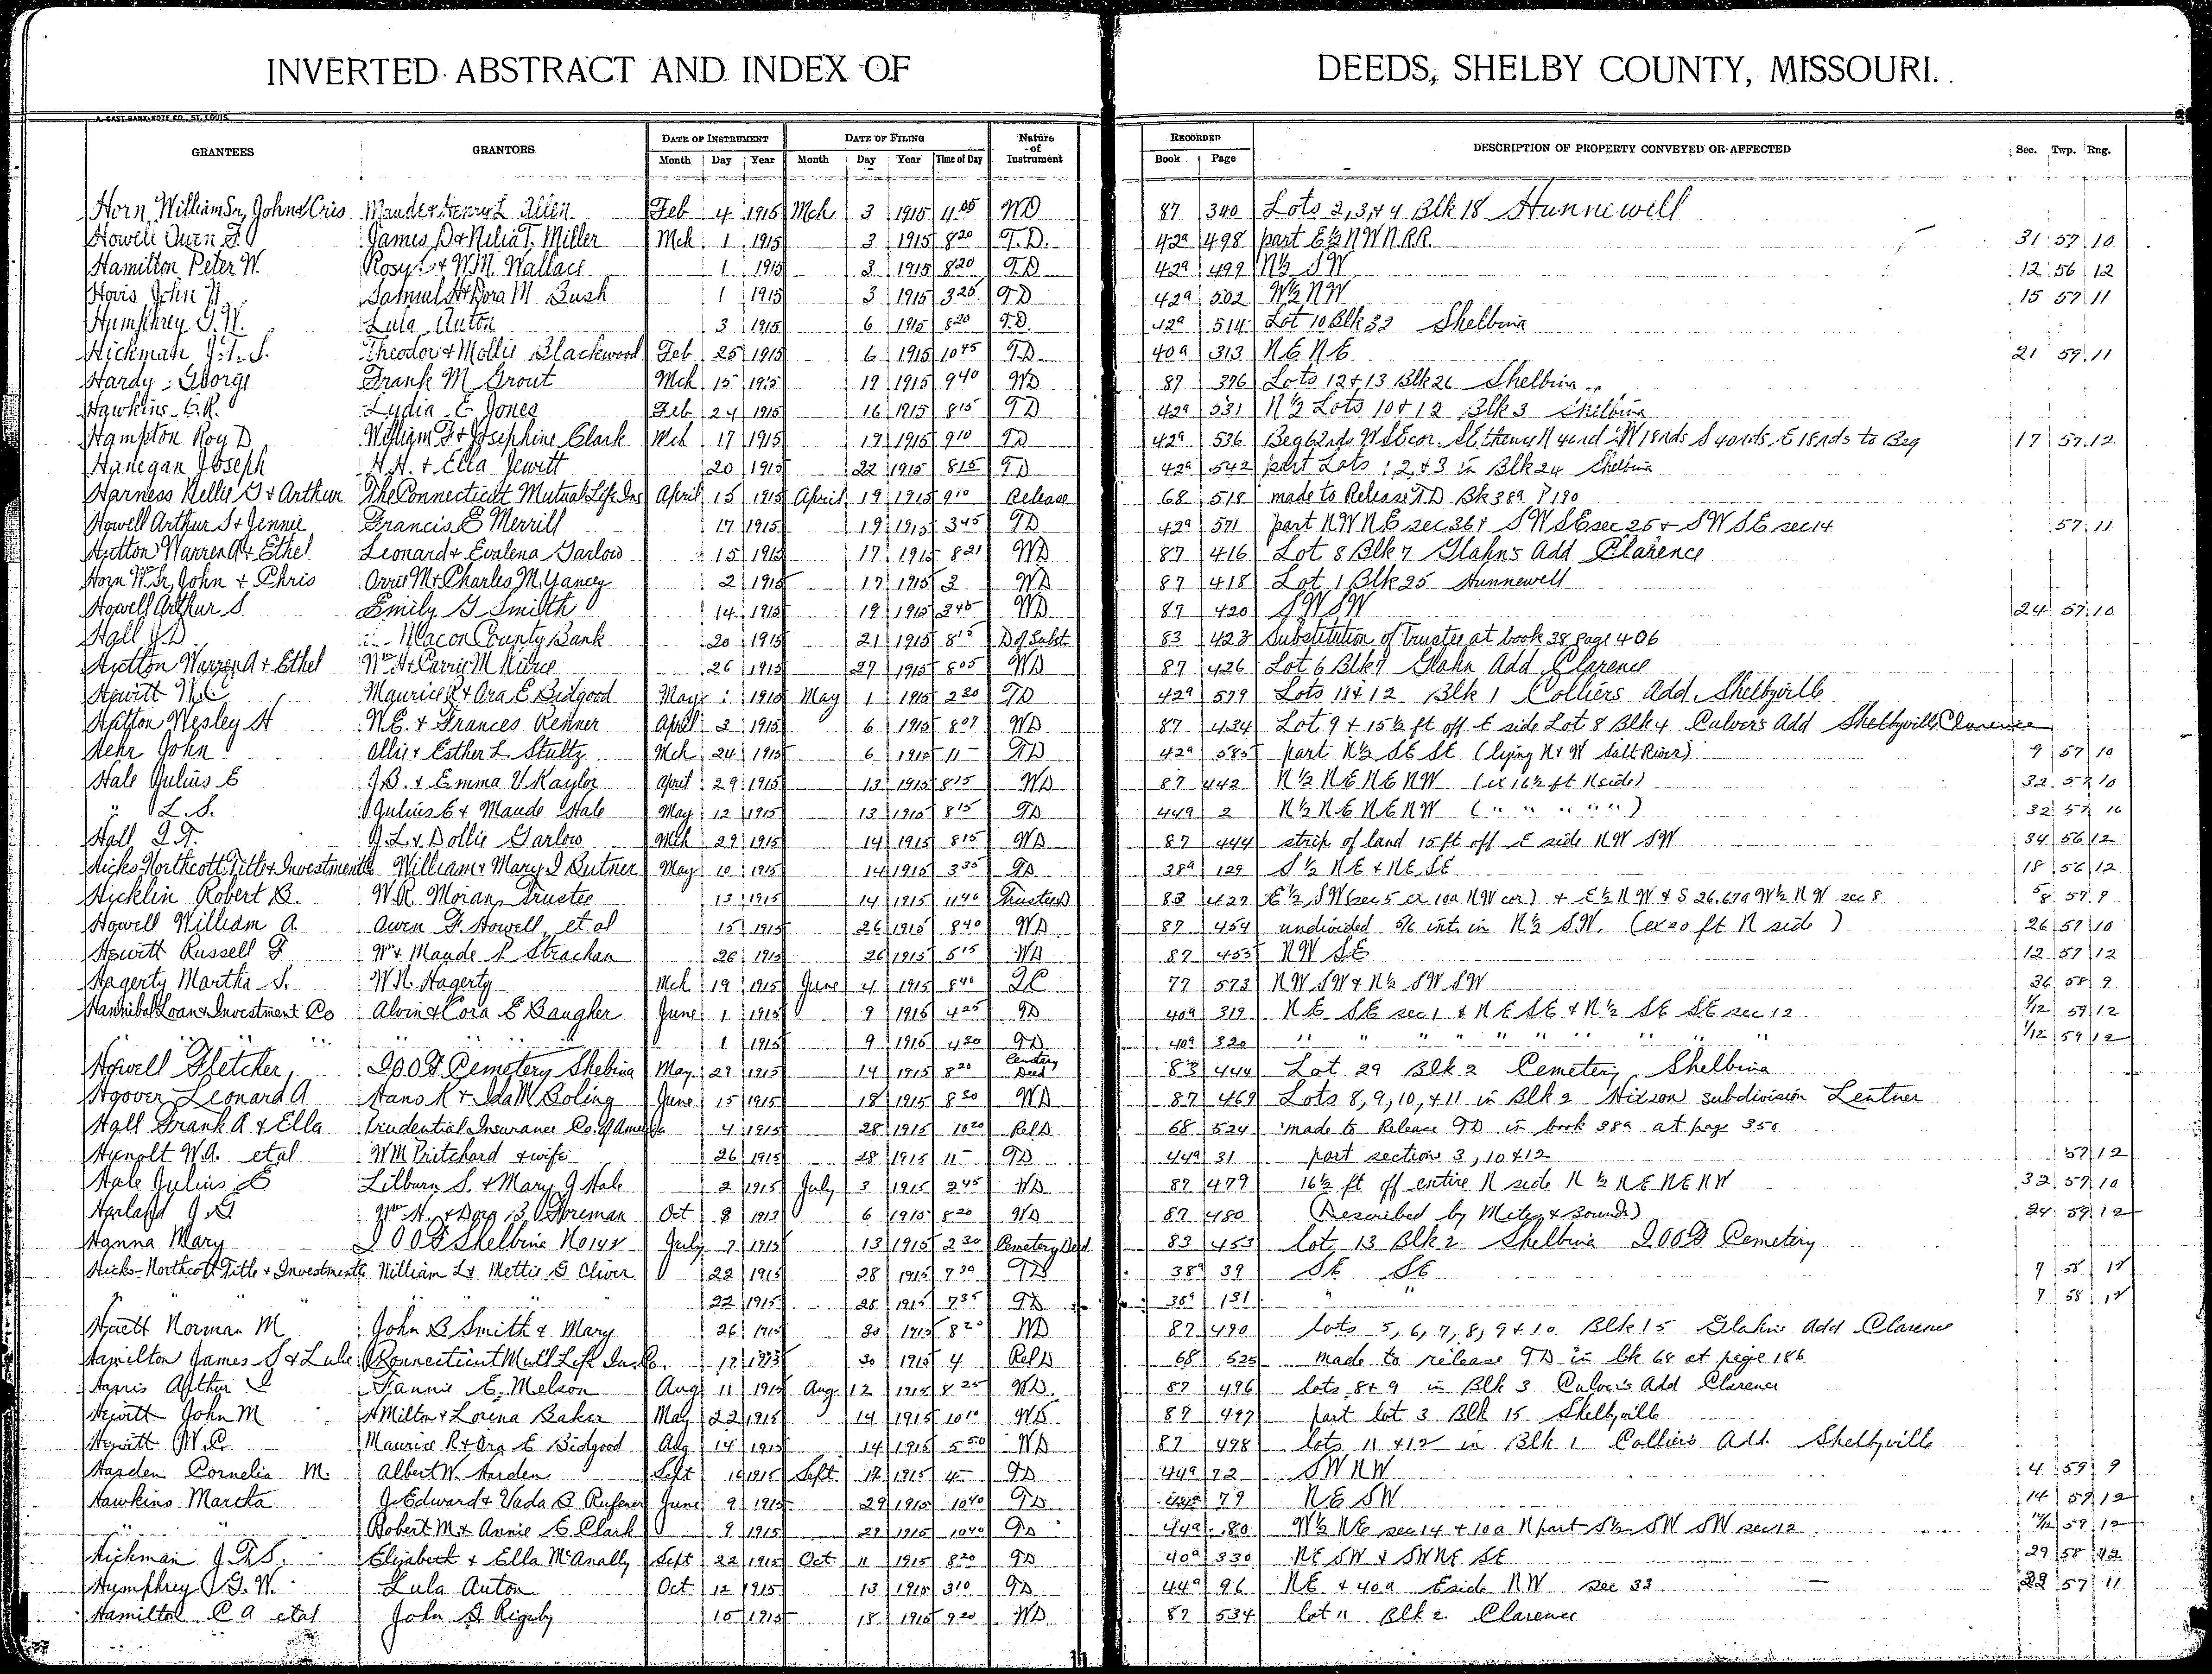 INVERTED ABSTRACT AND INDEX OF DEEDS, SHELBY COUNTY, MISSOURI.
GRANTEES GRANTORS DATE OF INSTRUMENT DATE OF FILING Nature of Instrument RECORDED DESCRIPTION OF PROPERTY CONVEYED OR AFFECTED Sec. Twp. Rng.
Month Day Year Month Day Year Time of Day Book Page
Horn William Sr, John & Cris Maude & Henry L Allen Feb 4 1915 Mch 3 1915 11 05 WD 87 340 Lots 2, 3, & 4 Blk 18 Hunnewell
Howell Owen F. James D & Nelia T. Miller Mch 1 1915 3 1915 8 20 T.D. 42a 498 part E½ N W N.R.R. 31 57 10
Hamilton Peter W. Rosy & W.M. Wallace 1 1915 3 1915 8 20 TD 42a 499 N½ SW 12 56 12
Hovis John Samuel H & Dora M Bush 1 1915 3 1915 3 25 TD 42a 502 W½ NW 15 57 11
Humphrey G.W. Lula Auton 3 1915 6 1915 8 20 TD 42a 514 Lot 10 Blk 32 Shelbina
Hickman J.T.S. Theodor & Mollie Blackwood Feb 25 1915 6 1915 10 45 TD 40a 313 NE NE 21 59 11
Hardy George Frank M Grout Mch 15 1915 19 1915 9 40 WD 87 396 Lots 12 & 13 Blk 26 Shelbina
Hawkins E.R. Lydia E Jones Feb 24 1915 16 1915 8 15 TD 42a 531 N½ Lots 10 & 12 Blk 3 Shelbina
Hampton Roy D William F & Josephine Clark Mch 17 1915 17 1915 9 10 TD 42a 536 Beg 62rds W SE cor. SE thence N 40rd W 18rds S 40rds E 18rds to Beg 17 57 12
Hanegan Joseph H.H. & Ella Jewitt 20 1915 22 1915 8 15 TD 42a 542 part Lots 1, 2, & 3 in Blk 24 Shelbina
Harness Nellie G & Arthur The Connecticut Mutual Life Ins April 15 1915 April 19 1915 9 10 Release 68 518 made to Release TD Bk 38a P 190
Howell Arthur S & Jennie Francis E Merrill 17 1915 19 1915 3 45 TD 42a 571 part NW NE sec 36 & SW SE sec 25 & SW SE sec 14 57 11
Hutton Warren A & Ethel Leonard & Evalena Garlow 15 1915 17 1915 8 21 WD 87 416 Lot 8 Blk 7 Glahns Add Clarence
Horn Wm Sr, John & Chris Orrie M & Charles M. Yancey 2 1915 17 1915 3 WD 87 418 Lot 1 Blk 25 Hunnewell
Howell Arthur S. Emily G Smith 14 1915 19 1915 3 45 WD 87 420 SW SW 24 57 10
Hall J D Macon County Bank 20 1915 21 1915 8 15 D of Subst 83 423 Substitution of Trustee at book 38 page 406
Hutton Warren A & Ethel Wm H & Carrie M 26 1915 27 1915 8 05 WD 87 426 Lot 6 Blk 7 Glahn Add Clarence
Hewitt W.C Maurice R & Ora E Bidgood May 1 1915 May 1 1915 2 30 TD 42a 579 Lots 11 & 12 Blk 1 Colliers Add. Shelbyville
Hutton Wesley H W.E. & Frances Renner April 3 1915 6 1915 8 07 WD 87 434 Lot 9 & 15½ ft off E side Lot 8 Blk 4 Culvers Add Shelbyville Clarence
Hehr John Ollie & Esther L. Stultz Mch 24 1915 6 1915 11 TD 42a 585 part N½ SE SE (lying N & W Salt River) 9 57 10
Hale Julius E J.B. & Emma V Kaylor April 29 1915 13 1915 8 15 WD 87 442 N½ NE NE NW (ex 16½ ft N side) 32 57 10
" L.S. Julius E & Maude Hale May 12 1915 13 1915 8 15 TD 44a 2 N½ NE NE NW ( " " " " " ) 32 57 10
Hall J.L & Dollie Garlow Mch 29 1915 14 1915 8 15 WD 87 444 strip of land 15 ft off E side NW SW 34 56 12
Hicks Northcott Title & Investments William & Mary J Butner May 10 1915 14 1915 3 35 TD 38a 129 S½ NE & NE SE 18 56 12
Hicklin Robert B. W.R. Moran, Trustee 13 1915 14 1915 11 40 Trustees D 83 427 E½ SW (sec 5 ex 10a NW cor) & E½ NW & S 26.67a W½ NW sec 8 5/8 57 9
Howell William A. Owen F. Howell et al 15 1915 26 1915 8 40 WD 87 454 undivided 5/6 int. in N½ SW. (ex 20 ft N side) 26 57 10
Hewitt Russell F Wm & Maude L Strachan 26 1915 26 1915 5 15 WD 87 455 NW SE 12 57 12
Hagerty Martha S. W.N. Hagerty Mch 19 1915 June 4 1915 8 40 QC 77 573 NW SW & N½ SW SW 36 58 9
Hannibal Loan & Investment Co Alvin & Cora E Baugher June 1 1915 9 1915 4 25 TD 40a 319 NE SE sec 1 & NE SE & N½ SE SE sec 12 1/12 59 12
" " " " " " 1 1915 9 1915 4 20 TD 40a 320 " " " " " " " " 1/12 59 12
Howell Fletcher IOOF Cemetery Shelbina May 29 1915 14 1915 8 20 Cemetery Deed 83 444 Lot 29 Blk 2 Cemetery, Shelbina
Hoover Leonard A Hans K & Ida M Boling June 15 1915 18 1915 8 30 WD 87 469 Lots 8, 9, 10, & 11 in Blk 2 Hixson subdivision Lentner
Hall Frank A & Ella Prudential Insurance Co. of America 4 1915 28 1915 10 20 Rel D 68 524 made to Release TD in book 38a at page 350
W.A. et al WM Pritchard & wife 26 1915 28 1915 11 TD 44a 31 part section 3, 10 & 12 57 12
Hale Julius E Lilburn S. & Mary J Hale 2 1915 July 3 1915 2 45 WD 87 479 16½ ft off entire N side N½ NE NE NW 32 57 10
Harland J G Wm H. & Dora B Foreman Oct 8 1913 6 1915 8 20 WD 87 480 (Described by Metes & Bounds) 24 59 12
Hanna Mary IOOF Shelbina July 7 1915 13 1915 2 30 Cemetery Deed 83 453 lot 13 Blk 2 Shelbina IOOF Cemetery
Hicks-Northcott Title & Investments William L & Mettie G Oliver 22 1915 28 1915 7 30 TD 38a 39 SE SE 9 58 12
" " " 22 1915 28 1915 7 35 TD 38a 131 " " 9 58 12
Huett Norman M John B Smith & Mary 26 1915 30 1915 8 20 WD 87 490 lots 5, 6, 7, 8, 9 & 10 Blk 15 Glahns Add Clarence
Hamilton James S & Lula Connecticut Mut'l Life Ins Co. 17 30 1915 4 Rel D 68 525 made to release TD in bk 68 at page 186
Harris Arthur Fannie E. Melson Aug 11 1915 Aug 12 1915 8 25 WD 87 496 lots 8 & 9 in Blk 3 Culvers Add Clarence
Hewitt John M Milton & Lorena Baker May 22 1915 14 1915 10 10 WD 87 497 part lot 3 Blk 15 Shelbyville
Hewitt W.C. Maurice R & Ora E Bidgood Aug 14 1915 14 1915 5 50 WD 87 498 lots 11 & 12 in Blk 1 Colliers Add. Shelbyville
Harden Cornelia M. Albert W. Harden Sept 1915 Sept 1915 TD 44a 72 SW NW 4 59 9
Hawkins Marcta J. Edward & Vada B June 9 1915 29 1915 10 40 TD 44a 79 NE SW 14 59 12
" " Robert M & Annie E. Clark 9 1915 29 1915 10 40 TD 44a 80 W½ NE sec 14 & 10a N part S½ SW SW sec 12 59 12
Hickman J.T.S. Elizabeth & Ella McAnally Sept 22 1915 Oct 11 1915 8 20 TD 40a 330 NE SW & SW NE SE 29 58 12
Humphrey G.W. Lula Auton Oct 12 1915 13 1915 3 10 TD 44a 96 NE & 40a E side NW sec 22 57 11
Hamilton C A et al John Rigsby 15 1915 18 1915 9 20 WD 87 534 lot 11 Blk 2 Clarence